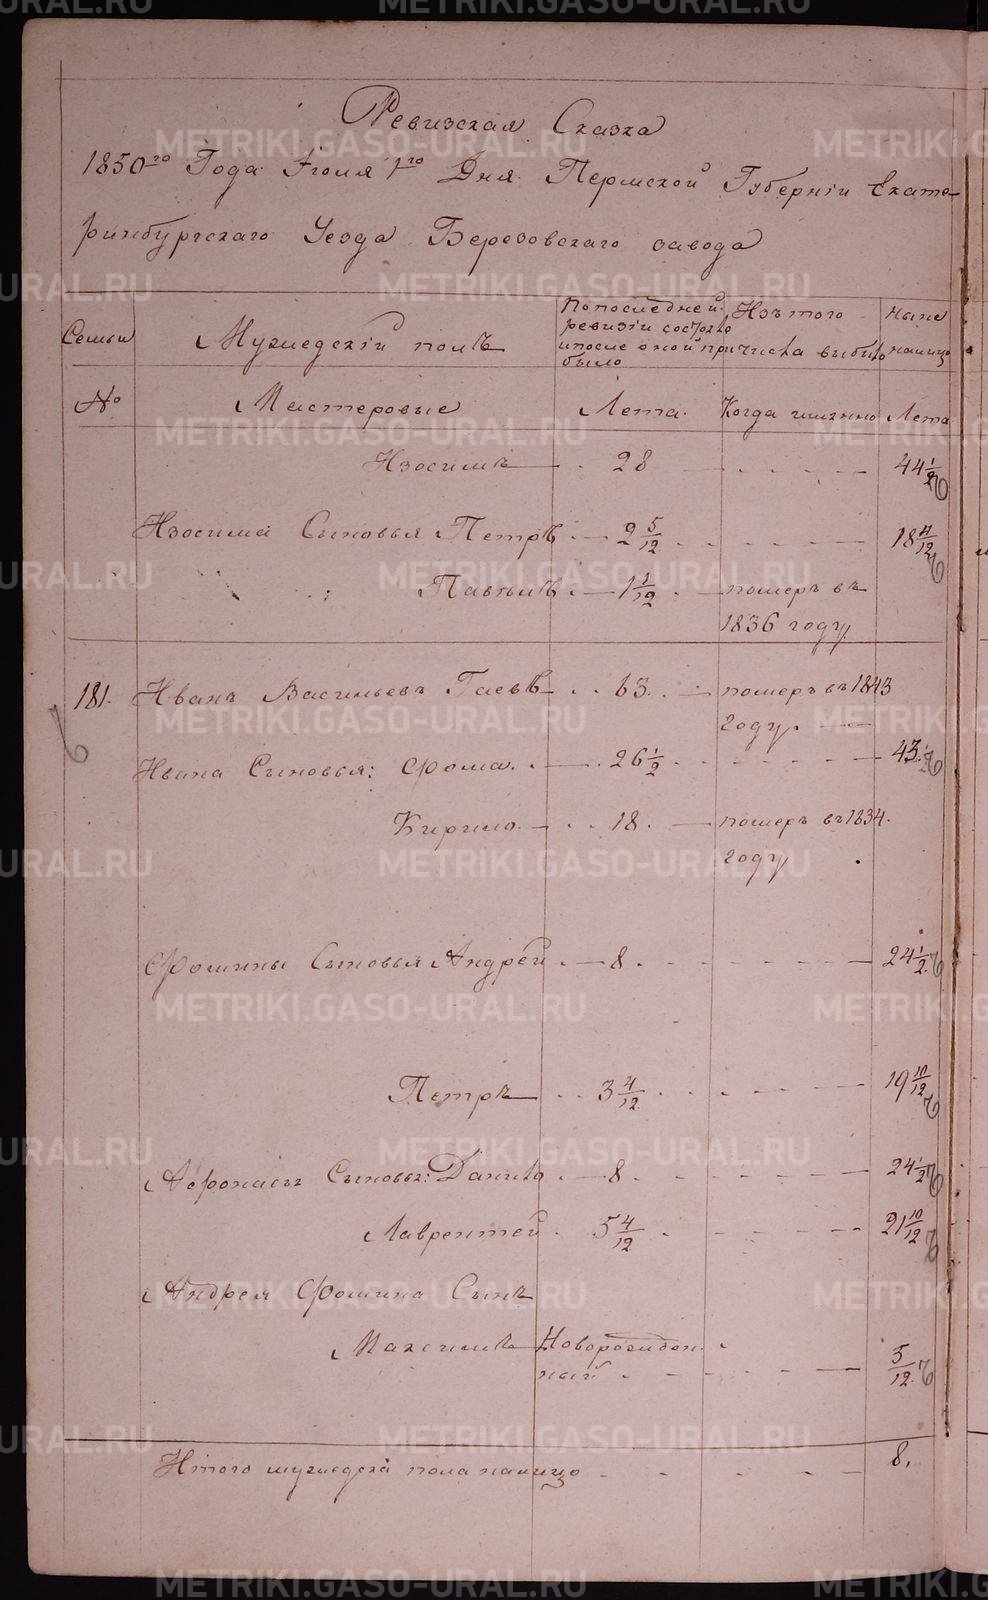 Ревизская Сказка
1850го Года Июля 1го Дня Пермской Губерніи Екате-
ринбургскаго Уезда Березовскаго завода
Семьи Мужескій полъ По последней ревизіи состояло и после оной прибыло Изъ того числа выбыло Ныне налицо
№ Мастеровые Лета Когда именно Лета
Изосимъ 28 44 1/2
Изосима Сыновья Петръ 2 5/12 18 11/12
Павелъ 1 1/12 померъ въ
1836 году
181. Иванъ Васильевъ Гаевъ 63. померъ въ 1843
году.
Ивана Сыновья: Фома. 26 1/2 43 1/2
Кирило 18. померъ въ 1834.
году
6
Фомины Сыновья Андрей 8. 24 1/2
Петръ 3 4/12 19 10/12
Афонасъ Сыновья: Данило 8. 24 1/2
Лаврентей 5 4/12 21 10/12
Андрея Фомина Сынъ
Максимъ Новорожден
ный 5/12
Итого мужеска пола налицо 8.
METRIKI.GASO-URAL.RU